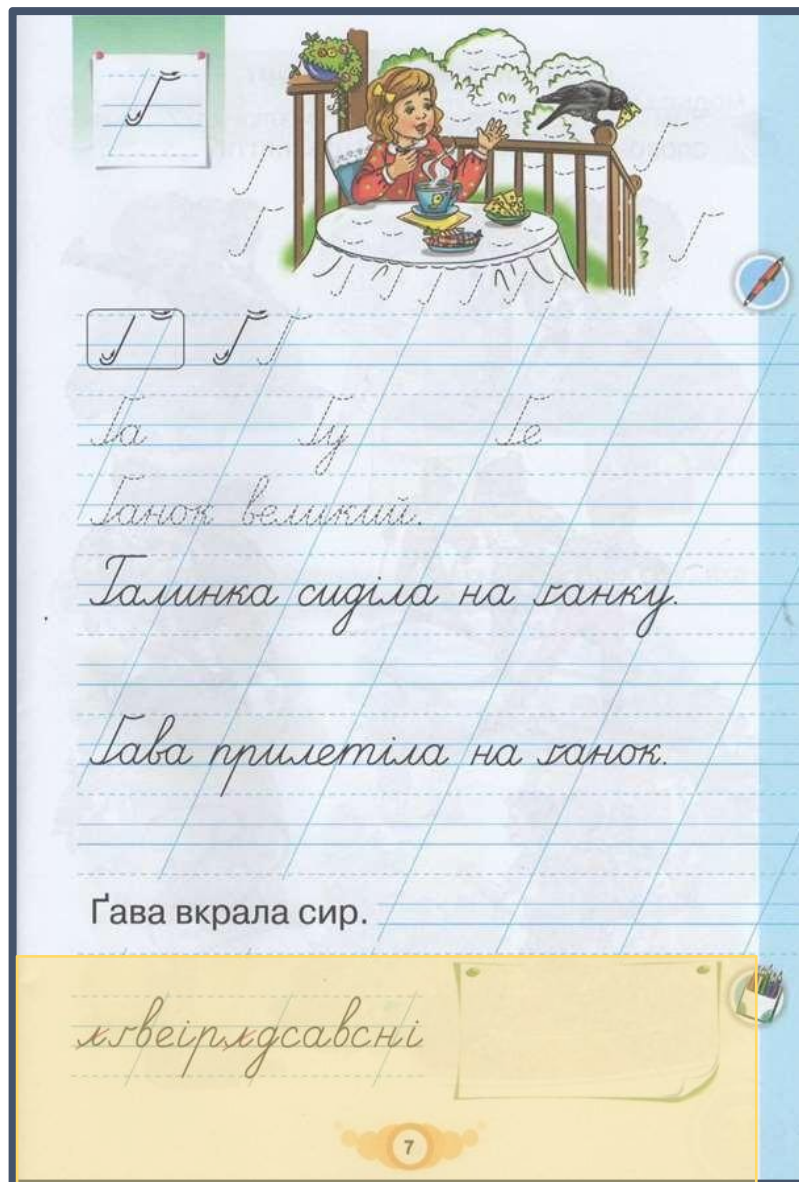 Ґ
Ґ Ґ Ґ
Ґа Ґу Ґе
Ґанок великий.
Галинка сиділа на ґанку.
Ґава прилетіла на ґанок.
Ґава вкрала сир.
лґвеірлдсавсні
7